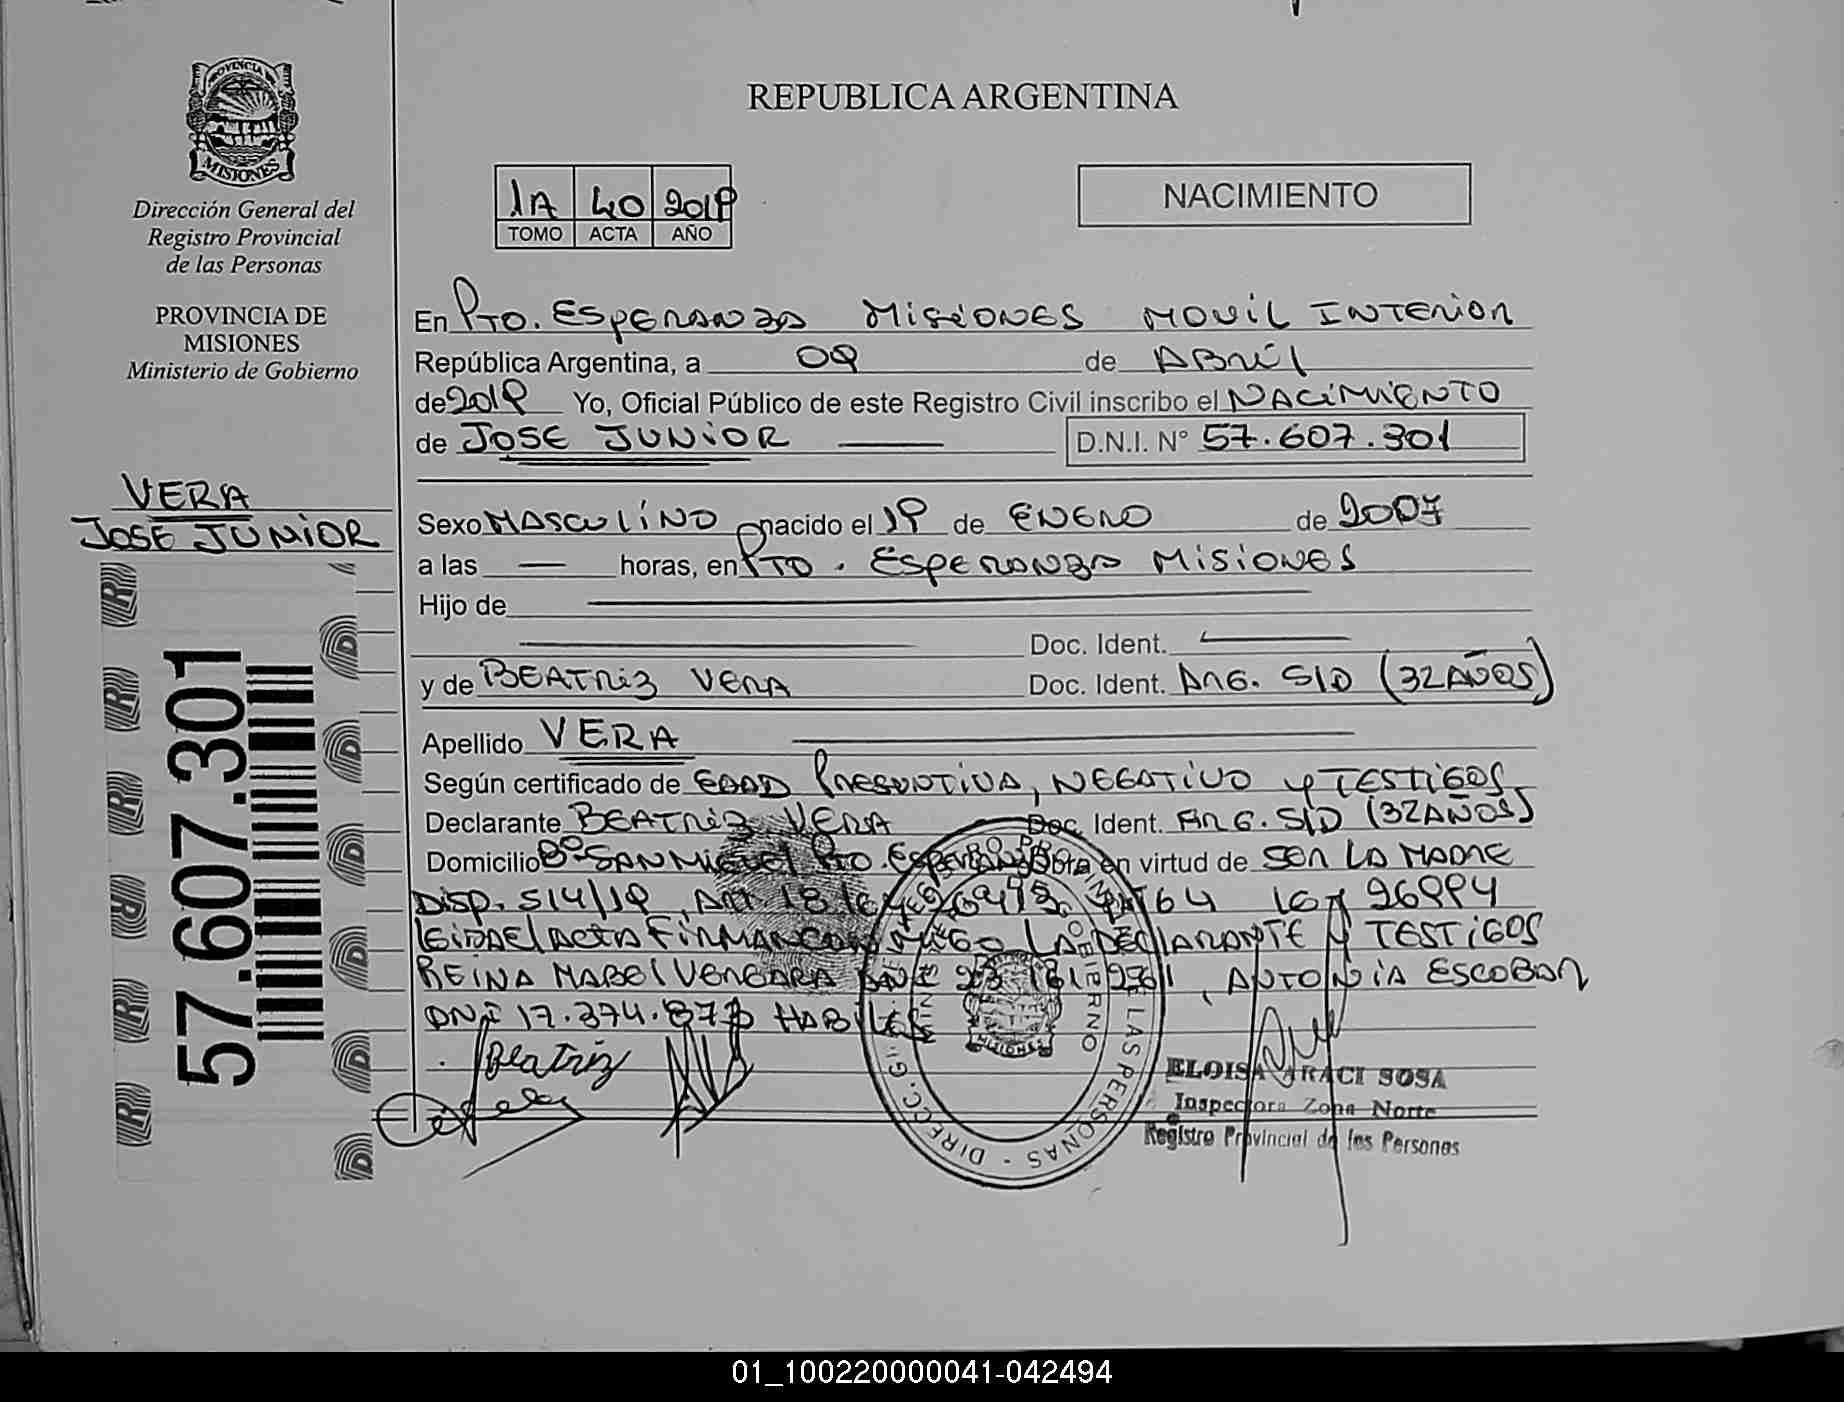 PROVINCIA DE
MISIONES
Dirección General del
Registro Provincial
de las Personas
PROVINCIA DE
MISIONES
Ministerio de Gobierno
VERA
JOSE JUNIOR
57.607.301
REPUBLICA ARGENTINA
1A 40 2019
TOMO ACTA AÑO
NACIMIENTO
En Pto. Esperanza Misiones Movil Interior
República Argentina, a 09 de Abril
de 2019 Yo, Oficial Público de este Registro Civil inscribo el NACIMIENTO
de JOSE JUNIOR
D.N.I. N° 57.607.301
Sexo MASCULINO nacido el 19 de ENERO de 2007
a las — horas, en Pto. Esperanza Misiones
Hijo de
Doc. Ident.
y de BEATRiz VERA Doc. Ident. ARG. S/D (32 AÑOS)
Apellido VERA
Según certificado de EDAD Presuntiva, NEGATIVO y TESTIGOS
Declarante BEATRiz VERA Doc. Ident. ARG. S/D (32 AÑOS)
Domicilio B° SAN MiGUEl Pto. Esperanza Obra en virtud de SER LA MADRE
Disp. 514/19, Art. 18 64 26994
Leida el Acta FIRMAN CONMIGO LA DEClARANTE y TESTIGOS
REINA MABEl VERGARA , ANTONIA ESCOBAR
DNI 17.374.873 HABILES
Beatriz
ELOISA ARACI SOSA
Inspectora Zona Norte
Registro Provincial de las Personas
01_100220000041-042494